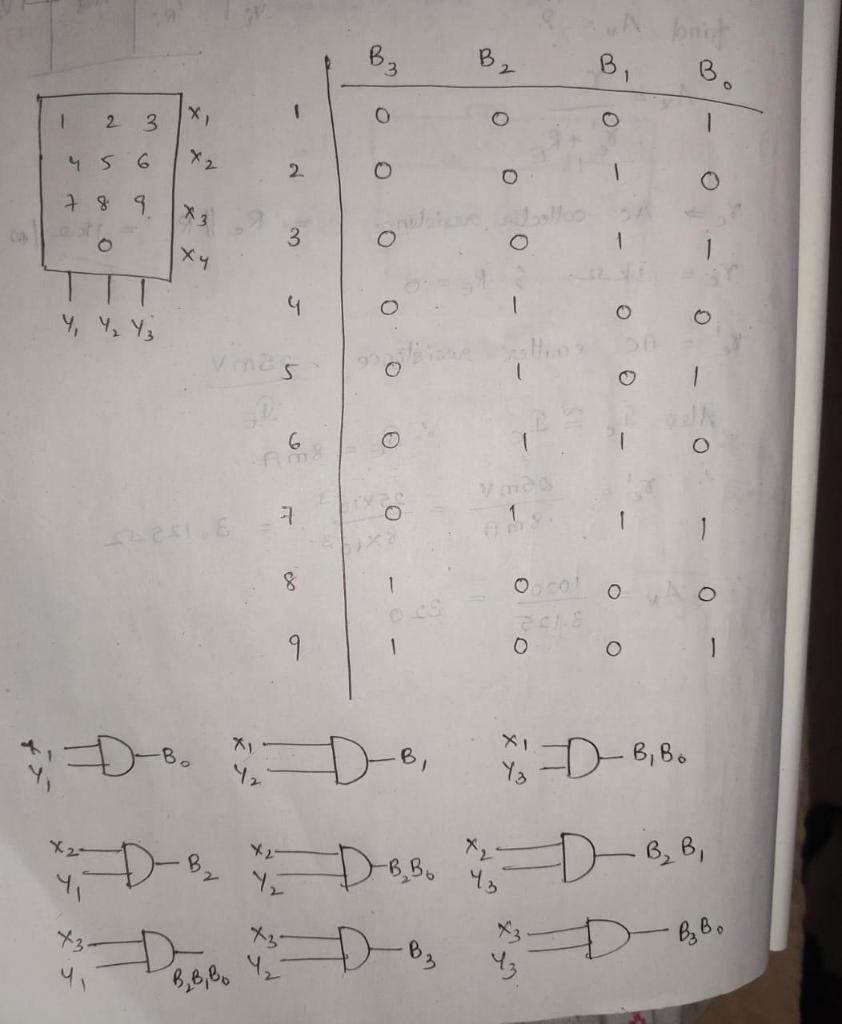 B3 B2 B1 B0
1 2 3 X1
4 5 6 X2
7 8 9 X3
0 X4
Y1 Y2 Y3
1 0 0 0 1
2 0 0 1 0
3 0 0 1 1
4 0 1 0 0
5 0 1 0 1
6 0 1 1 0
7 0 1 1 1
8 1 0 0 0
9 1 0 0 1
X1 Y1 B0
X1 Y2 B1
X1 Y3 B1B0
X2 Y1 B2
X2 Y2 B2B0
X2 Y3 B2B1
X3 Y1 B2B1B0
X3 Y2 B3
X3 Y3 B3B0